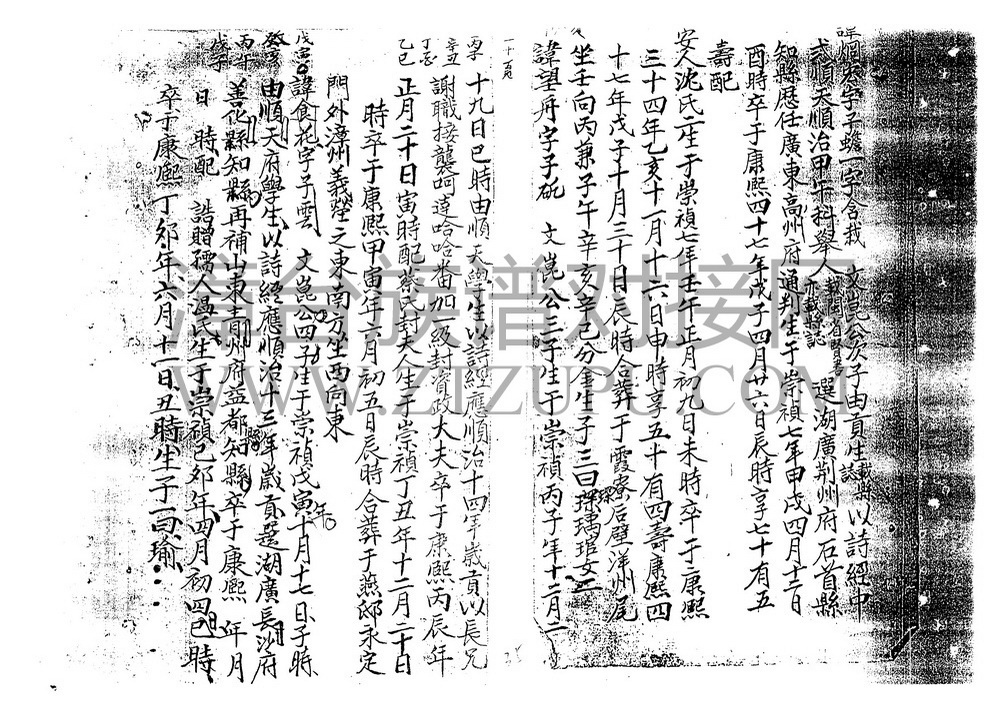 諱烱宏字子蟾一字含哉 文崑公次子由貢生載縣誌以詩經中
式順天順治甲午科舉人載閩省賢書亦載縣誌 選湖廣荆州府石首縣
知縣歷任廣東高州府通判生于崇禎七年甲戌四月廿二日
酉時卒于康熙四十七年戊子四月廿六日辰時享七十有五
壽配
安人沈氏二生于崇禎七年壬午正月初九日未時卒于康熙
三十四年乙亥十一月十六日申時享五十有四壽康熙四
十七年戊子十月三十日辰時合葬于霞寮后壁洋州尾
坐壬向丙兼子午辛亥辛巳分金生子三曰琛瑀琯女二
諱望舟字子砥 文崑公三子生于崇禎丙子年十二月二
一十二頁
丙子 十九日巳時由順天學生以詩經應順治十四年歲貢以長兄
辛丑 謝職接襲呵達哈哈番加一級封資政大夫卒于康熙丙辰年
丁丑 正月二十日寅時配蔡氏封夫人生于崇禎丁丑年十二月二十日
乙巳 時卒于康熙甲寅年六月初五日辰時合葬于燕邸永定
門外漳州義塋之東南分坐西向東
戊寅 諱食花字子雲 文崑公四子生于崇禎戊寅年十月十七日子時
癸亥 由順天府學生以詩經應順治十三年歲貢選湖廣長沙府
丙午 善化縣知縣再補山東青州府益都知縣卒于康熙 年 月
戊子 日 時配 誥贈孺人溫氏生于崇禎己卯年四月初四日巳時
卒于康熙丁卯年六月十一日丑時生子一曰瑜
浩台族譜对接网
WWW.ZIZUPU.COM